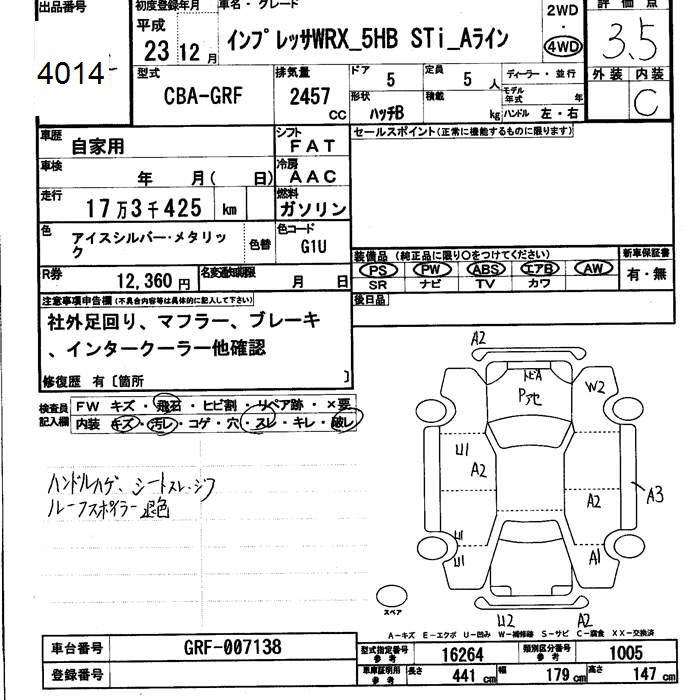 出品番号
4014
初度登録年月
平成
23 12 月
車名・グレード
インプレッサWRX_5HB STi_Aライン
2WD
・
4WD
評価点
3.5
型式
CBA-GRF
排気量
2457
CC
ドア
5
定員
5
人
ディーラー・並行
モデル年式
年
形状
ハッチB
積載
kg
ハンドル 左・右
外装 内装
C
車歴
自家用
シフト
FAT
車検
年 月( 日)
冷房
AAC
走行
17万3千425
km
燃料
ガソリン
色
アイスシルバー・メタリック
色替
色コード
G1U
R券
12,360 円
名変通知期限
月 日
セールスポイント(正常に機能するものに限ります)
装備品 (純正品に限り○をつけてください)
新車保証書
PS PW ABS エアB AW
SR ナビ TV カワ
有・無
後日品
注意事項申告欄(不具合内容等は具体的に記入して下さい)
社外足回り、マフラー、ブレーキ
、インタークーラー他確認
修復歴 有〔箇所 〕
検査員
記入欄
FW キズ・飛石・ヒビ割・リペア跡・×要
内装 キズ・汚レ・コゲ・穴・スレ・キレ・破レ
ハンドルハゲ、シートスレ・シワ
ルーフスポイラー退色
A2
トビA
Pアセ
W2
U1
A2
A2
A3
U1
U1
A1
U2
A2
スペア
A-キズ E-エクボ U-凹み W-補修跡 S-サビ C-腐食 XX-交換済
車台番号
GRF-007138
登録番号
型式指定番号
参考
16264
類別区分番号
参考
1005
車庫証明用
参考
長さ
441 cm
幅
179 cm
高さ
147 cm